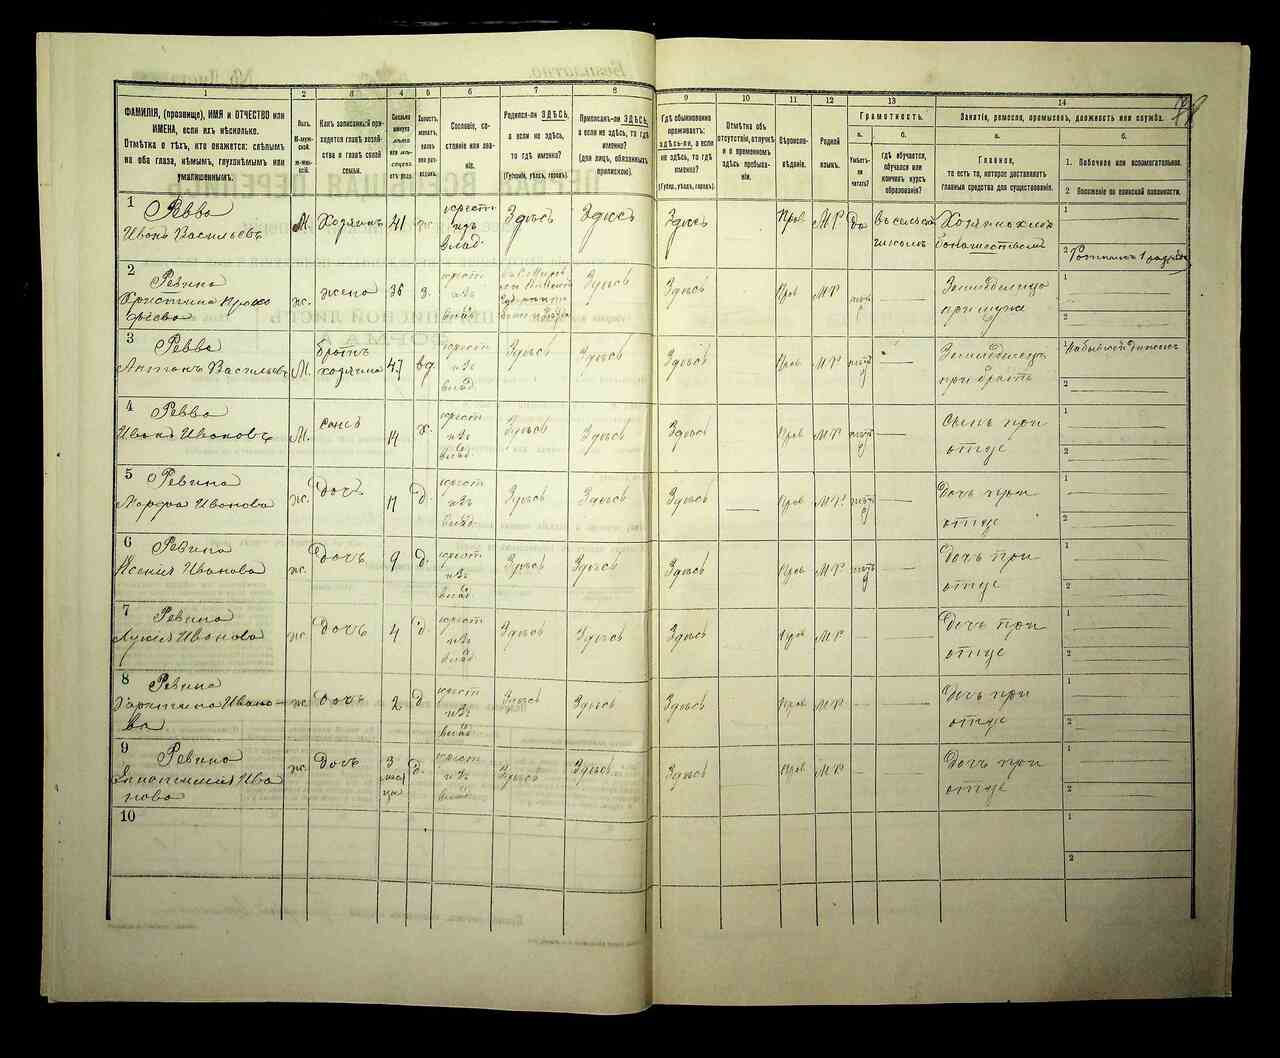 1
2
3
4
5
6
7
8
ФАМИЛІЯ, (прозвище), ИМЯ и ОТЧЕСТВО или
ИМЕНА, если ихъ нѣсколько.
Отмѣтка о тѣхъ, кто окажется: слѣпымъ
на оба глаза, нѣмымъ, глухонѣмымъ или
умалишеннымъ.
Полъ.
М-муж-
ской.
Ж-жен-
скій.
Какъ записанный при-
ходится главѣ хозяй-
ства и главѣ своей
семьи.
Сколько
минуло
лѣтъ
или мѣ-
сяцевъ
отъ роду.
Холостъ,
женатъ,
вдовъ
или раз-
веденъ.
Сословіе, со-
стояніе или зва-
ніе.
Родился-ли ЗДѢСЬ,
а если не здѣсь,
то гдѣ именно?
(Губернія, уѣздъ, городъ).
Приписанъ-ли ЗДѢСЬ,
а если не здѣсь, то гдѣ
именно?
(для лицъ, обязанныхъ
припискою).
9
10
11
12
13
14
Гдѣ обыкновенно
проживаетъ:
здѣсь-ли, а если
не здѣсь, то гдѣ
именно?
(Губерн., уѣздъ, городъ).
Отмѣтка объ
отсутствіи, отлучкѣ
и о временномъ
здѣсь пребыва-
ніи.
Вѣроиспо-
вѣданіе.
Родной
языкъ.
Грамотность.
а.
Умѣетъ-
ли
читать?
б.
гдѣ обучается,
обучался или
кончилъ курсъ
образованія?
Занятіе, ремесло, промыселъ, должность или служба.
а.
Главное,
то есть то, которое доставляетъ
главныя средства для существованія.
б.
1. Побочное или вспомогательное.
2 Положеніе по воинской повинности.
1 Ревва
Иванъ Васильевъ
М. Хозяинъ 41 крест. изъ влад. Здѣсь Здѣсь Здѣсь Прав М Р Да Въ сельской школѣ
2 Ревина
Христина Проко
фіева
ж. жена 36 з. крест. изъ влад. Здѣсь Здѣсь Прав М Р
при мужѣ
3 Ревва
Антонъ Васильевъ
М. братъ хозяина 47 вд крест. изъ влад. Здѣсь Здѣсь Здѣсь Прав М Р нѣтъ
при братѣ
4 Ревва
Иванъ Ивановъ
М. сынъ 14 х. крест. изъ влад. Здѣсь Здѣсь Здѣсь Прав М Р нѣтъ — Сынъ при отцѣ
5 Ревина
Марфа Иванова
ж. дочь 11 д. крест. изъ влад. Здѣсь Здѣсь Здѣсь — Прав М Р нѣтъ — Дочь при отцѣ
6 Ревина
Ксенія Иванова
ж. дочь 9 д. крест. изъ влад. Здѣсь Здѣсь Здѣсь Прав М Р нѣтъ — Дочь при отцѣ
7 Ревина
Лукія Иванова
ж. дочь 4 д. крест. изъ влад. Здѣсь Здѣсь Здѣсь Прав М Р — — Дочь при отцѣ
8 Ревина
Харитина Ивано-
ва
ж. дочь 2 д. крест. изъ влад. Здѣсь Здѣсь Здѣсь Прав М Р — — Дочь при отцѣ
9 Ревина
Ива
нова
ж. дочь 3 мѣсяца д. крест. изъ влад. Здѣсь Здѣсь Здѣсь Прав М Р — — Дочь при отцѣ
10
1
2